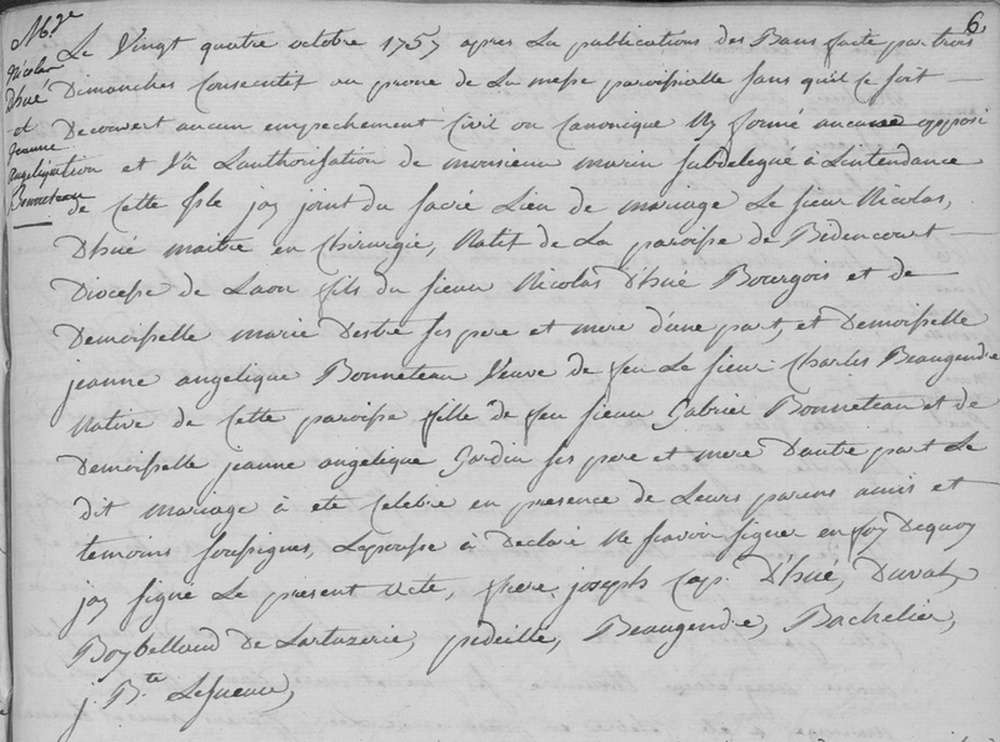 6.
M.ge
Nicolas
Dhué
et
jeanne
angelique
Bonneteau
Le Vingt quatre octobre 1757 apres La publications des Bans faite par trois
Dimanches Consecutif au prone de La messe paroissialle sans quil ce soit
Decouvert aucun empechement Civil ou Canonique Ny formé aucune opposi
tion et Vû Lauthorisation de monsieur marin subdelegué à Lintendance
de Cette Isle jay joint du sacré Lien de mariage Le sieur Nicolas,
Dhué maitre en Chirurgie, Natif de La paroisse de Bidencourt
Diocesse de Laon fils du sieur Nicolas Dhué Bourgois et de
Demoisselle marie Destré ses pere et mere d'une part, et Demoisselle
jeanne angelique Bonneteau Veuve de feu Le sieur Charles Beaugendre
Native de Cette paroisse fille de feu sieur Gabriel Bonneteau et de
Demoisselle jeanne angelique Jardin ses pere et mere Dautre part Le
dit mariage à eté Celebré en presence de Leurs parens amis et
temoins soussignes, Lepousse à Declaré Ne sçavoir signer en foy Dequoy
jay signé Le present Acte, frere joseph Cap. D'hué, Duval,
Boybellaud De Lartuzerie, pedeille, Beaugendre, Bachelier,
j. B.te Lesueur,